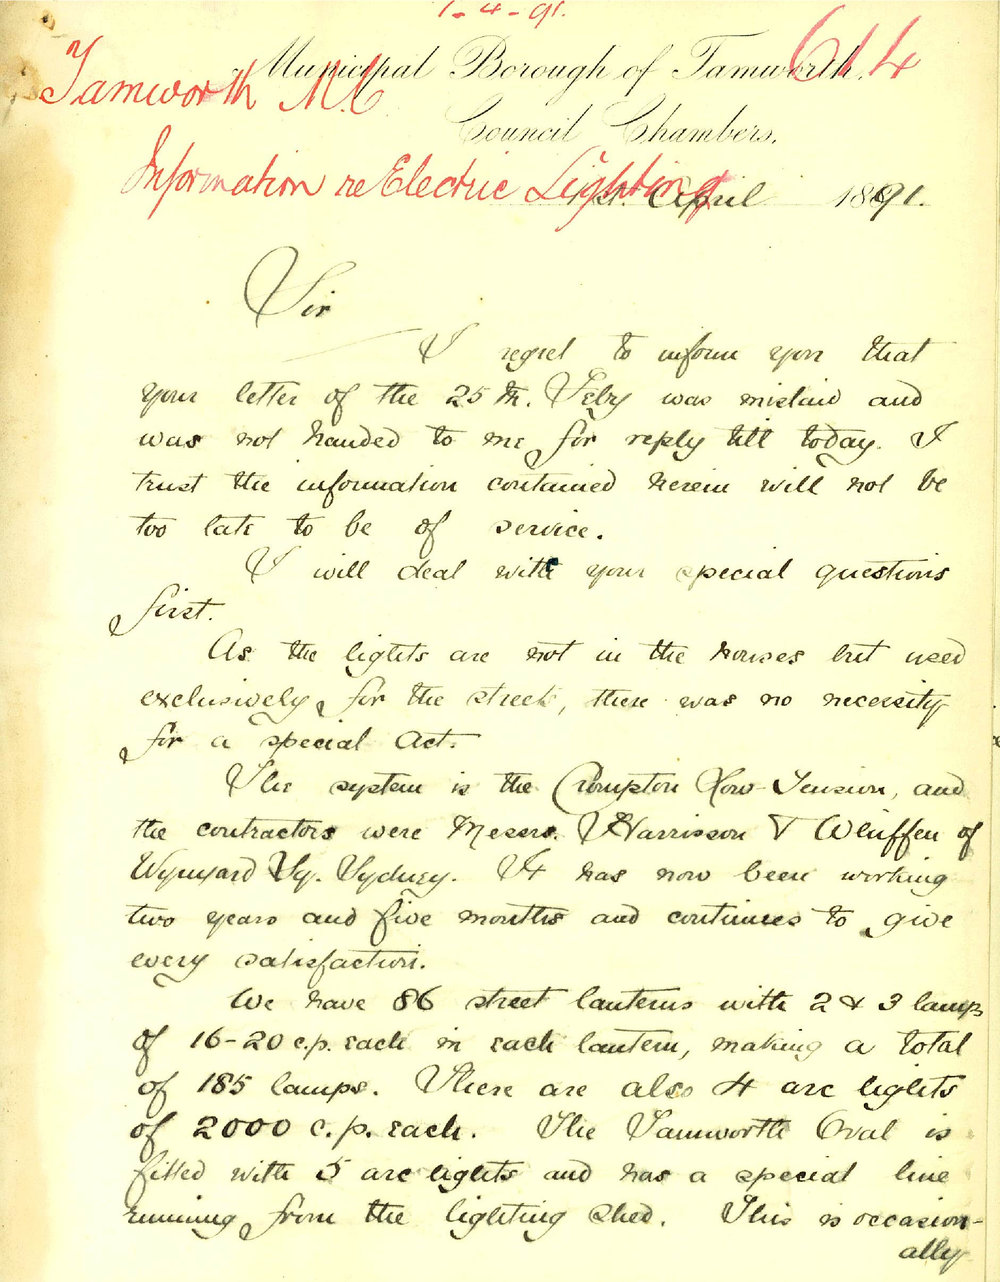 1-4-91.
614
Tamworth M.C
Municipal Borough of Tamworth,
Council Chambers,
Information re Electric Lighting
1st. April 1891.
Sir
I regret to inform you that
your letter of the 25th. Feby was mislaid and
was not handed to me for reply till today. I
trust the information contained herein will not be
too late to be of service.
I will deal with your special questions
first.
As the lights are not in the houses but used
exclusively for the streets, there was no necessity
for a special Act.
The system is the Crompton Low-Tension, and
the contractors were Messrs. Harrisson & Whiffen of
Wynyard Sq. Sydney. It has now been working
two years and five months and continues to give
every satisfaction.
We have 86 street lanterns with 2 & 3 lamps
of 16-20 c.p. each in each lantern, making a total
of 185 lamps. There are also 4 arc lights
of 2000 c.p. each. The Tamworth Oval is
fitted with 5 arc lights and has a special line
running from the lighting shed. This is occasion-
ally